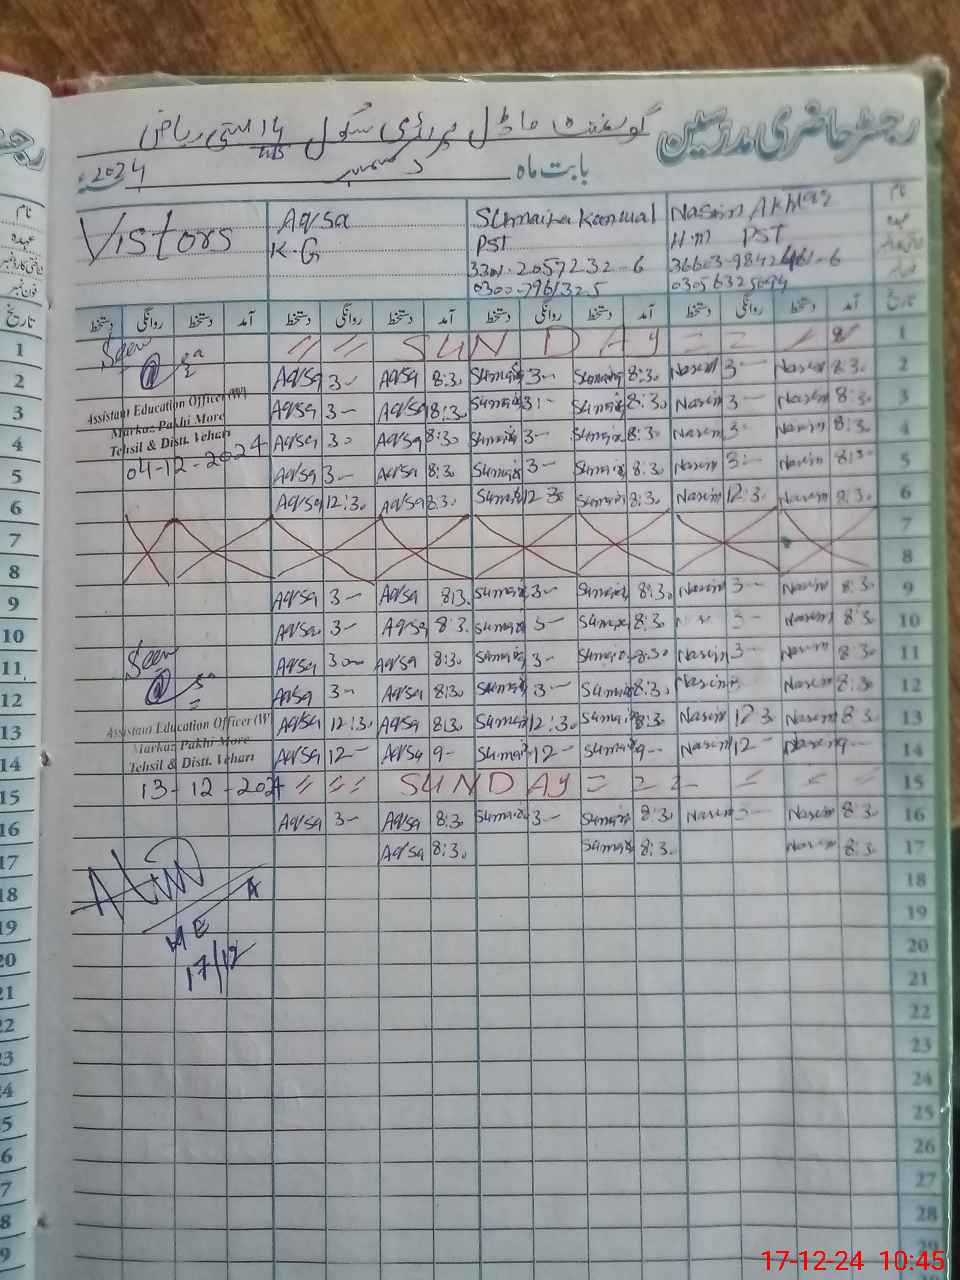 رجسٹر حاضری مدرسین گورنمنٹ ماڈل پرائمری سکول
بابت ماہ دسمبر 2024
نام
عہدہ
Nasim Akhtar
H.M PST
Sumaira Kanwal
PST
0300-7961325
Aqsa
K.G
Vistors
تاریخ آمد دستخط روانگی دستخط آمد دستخط روانگی دستخط آمد دستخط روانگی دستخط آمد دستخط روانگی دستخط
1 SUNDAY
Seen
2 Aqsa 3- Aqsa 8:30 Sumaira 3- Sumaira 8:30 Nasim 3- Nasim 8:30
Assistant Education Officer (W)
3 Aqsa 3- Aqsa 8:30 Sumaira 3:- Sumaira 8:30 Nasim 3- Nasim 8:30
Markaz Pakhi More
4 Aqsa 30 Aqsa 8:30 Sumaira 3- Sumaira 8:30 Nasim 3- Nasim 8:30
Tehsil & Distt. Vehari
04-12-2024
5 Aqsa 3- Aqsa 8:30 Sumaira 3- Sumaira 8:30 Nasim 3:- Nasim 8:30
6 Aqsa 12:30 Aqsa 8:30 Sumaira 12:30 Sumaira 8:30 Nasim 12:30 Nasim 8:30
7
8
9 Aqsa 3- Aqsa 8:30 Sumaira 3- Sumaira 8:30 Nasim 3- Nasim 8:30
10 Aqsa 3- Aqsa 8:30 Sumaira 3- Sumaira 8:30 3- Nasim 8:30
Seen
11 Aqsa 3- Aqsa 8:30 Sumaira 3- Sumaira 8:30 Nasim 3- Nasim 8:30
12 Aqsa 3- Aqsa 8:30 Sumaira 3- Sumaira 8:30 Nasim 3- Nasim 8:30
Assistant Education Officer (W)
13 Aqsa 12:30 Aqsa 8:30 Sumaira 12:30 Sumaira 8:30 Nasim 12:30 Nasim 8:30
Markaz Pakhi More
14 Aqsa 12- Aqsa 9- Sumaira 12- Sumaira 9- Nasim 12- Nasim 9-
Tehsil & Distt. Vehari
13-12-2024
15 SUNDAY
16 Aqsa 3- Aqsa 8:30 Sumaira 3- Sumaira 8:30 Nasim 3- Nasim 8:30
17 Aqsa 8:30 Sumaira 8:30 Nasim 8:30
MEA
17/12
18
19
20
21
22
23
24
25
26
27
28
29
17-12-24 10:45